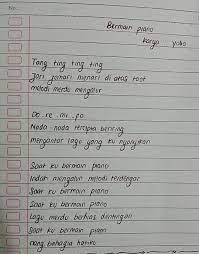 No.
Bermain piano
karya yoko
Tang ting ting ting
Jari jemari menari di atas toot
melodi merdu mengalir
Do.. re.. mi.. pa
Nada - nada tercipta bening
mengantar lagu yang ku nyanyikan
Saat ku bermain piano
Indah mengalun melodi terdengar
Saat ku bermain piano
lagu merdu berkias dentingan
Saat ku bermain piano
riang bahagia hatiku